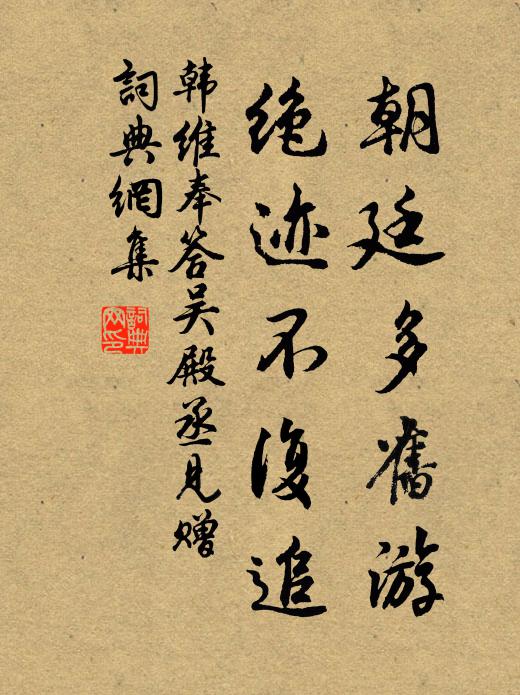 朝廷多舊游
绝迹不復追
韩維奉答吴殿丞見赠
詞典網集
詞典网印